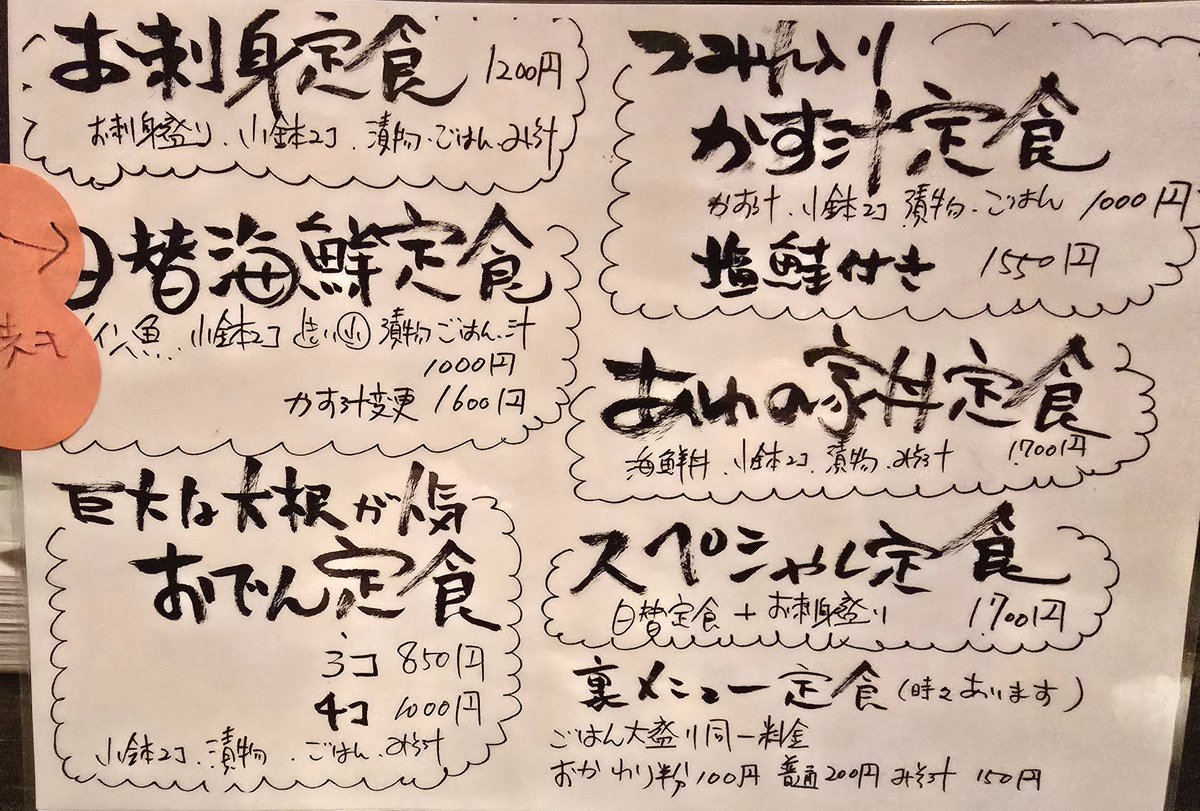 お刺身定食 1200円
お刺身盛り、小鉢2コ、漬物、ごはん、みそ汁
日替海鮮定食
イン魚、小鉢2コ 漬物 ごはん、汁
1000円
かす汁変更 1600円
巨大な大根が人気
おでん定食
3コ 850円
4コ 1000円
小鉢2コ、漬物、ごはん、みそ汁
つみれ入り
かす汁定食
かす汁、小鉢2コ 漬物、ごはん 1000円
塩鮭付き 1550円
あわの家丼定食
海鮮丼、小鉢2コ、漬物、みそ汁 1700円
スペシャル定食
日替定食+お刺身盛り 1700円
裏メニュー定食(時々あります)
ごはん大盛り同一料金
おかわり半分100円 普通200円 みそ汁 150円